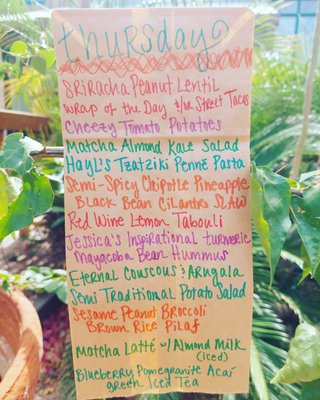 thursday
Sriracha Peanut Lentil
Wrap of the Day Street Tacos
Cheezy Tomato Potatoes
Matcha Almond Kale Salad
Hayl's Tzatziki Penne Pasta
Semi-Spicy Chipotle Pineapple
Black Bean Cilantro Slaw
Red Wine Lemon Tabouli
Jessica's Inspirational turmeric
Mayacoba Bean Hummus
Eternal Couscous & Arugala
Semi Traditional Potato Salad
Sesame Peanut Broccoli
Brown Rice Pilaf
Matcha Latté w/Almond Milk
(iced)
Blueberry Pomegranite Acaí
green Iced Tea